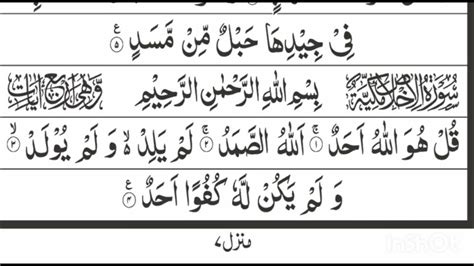 فِیْ جِیْدِهَا حَبْلٌ مِّنْ مَّسَدٍ ۵ ع
سُوْرَةُ الْاِخْلَاصِ مَكِّیَّةٌ بِسْمِ اللّٰهِ الرَّحْمٰنِ الرَّحِیْمِ وَّهِیَ اَرْبَعُ اٰیَاتٍ
قُلْ هُوَ اللّٰهُ اَحَدٌ ۱ اَللّٰهُ الصَّمَدُ ۲ لَمْ یَلِدْ ۙ۬ وَ لَمْ یُوْلَدْ ۳
وَ لَمْ یَكُنْ لَّهٗ كُفُوًا اَحَدٌ ۴ ع
منزل ۷
InShOt